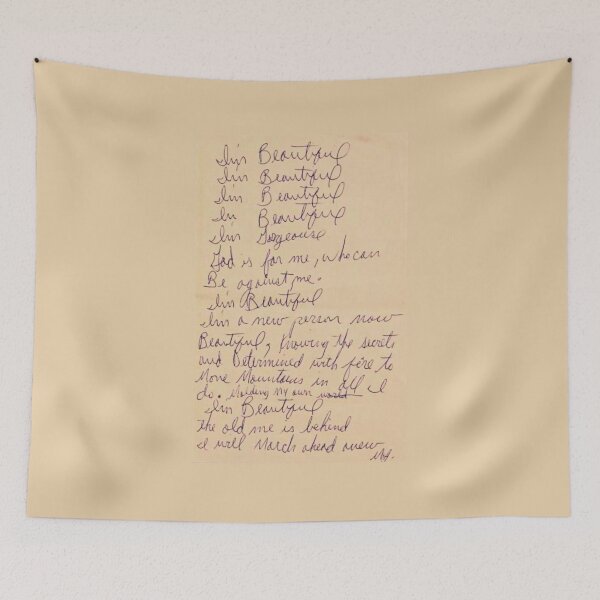 I'm Beautiful
I'm Beautiful
I'm Beautiful
I'm Beautiful
I'm Gorgeouse
God is for me, who can
Be against me.
I'm Beautiful
I'm a new person now
Beautiful, Knowing the secrets
and Determined with fire to
Move Mountains in all I
do. Molding My own world
I'm Beautiful
The old me is behind
I will March ahead anew
MJ.